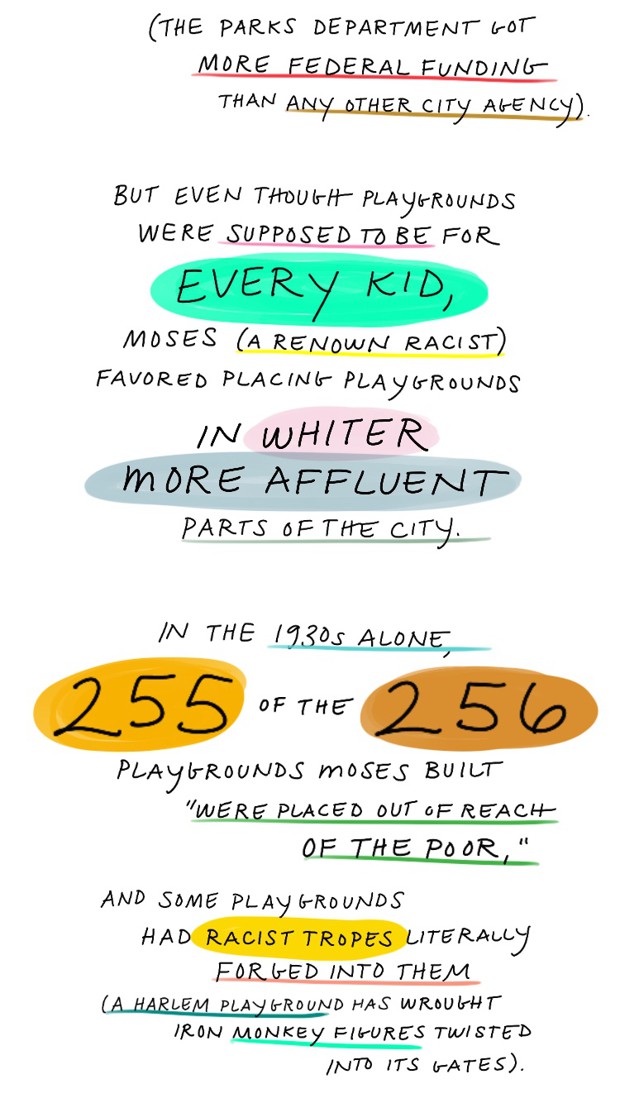 (THE PARKS DEPARTMENT GOT
MORE FEDERAL FUNDING
THAN ANY OTHER CITY AGENCY).
BUT EVEN THOUGH PLAYGROUNDS
WERE SUPPOSED TO BE FOR
EVERY KID,
MOSES (A RENOWN RACIST)
FAVORED PLACING PLAYGROUNDS
IN WHITER
MORE AFFLUENT
PARTS OF THE CITY.
IN THE 1930s ALONE,
255 OF THE 256
PLAYGROUNDS MOSES BUILT
"WERE PLACED OUT OF REACH
OF THE POOR,"
AND SOME PLAYGROUNDS
HAD RACIST TROPES LITERALLY
FORGED INTO THEM
(A HARLEM PLAYGROUND HAS WROUGHT
IRON MONKEY FIGURES TWISTED
INTO ITS GATES).